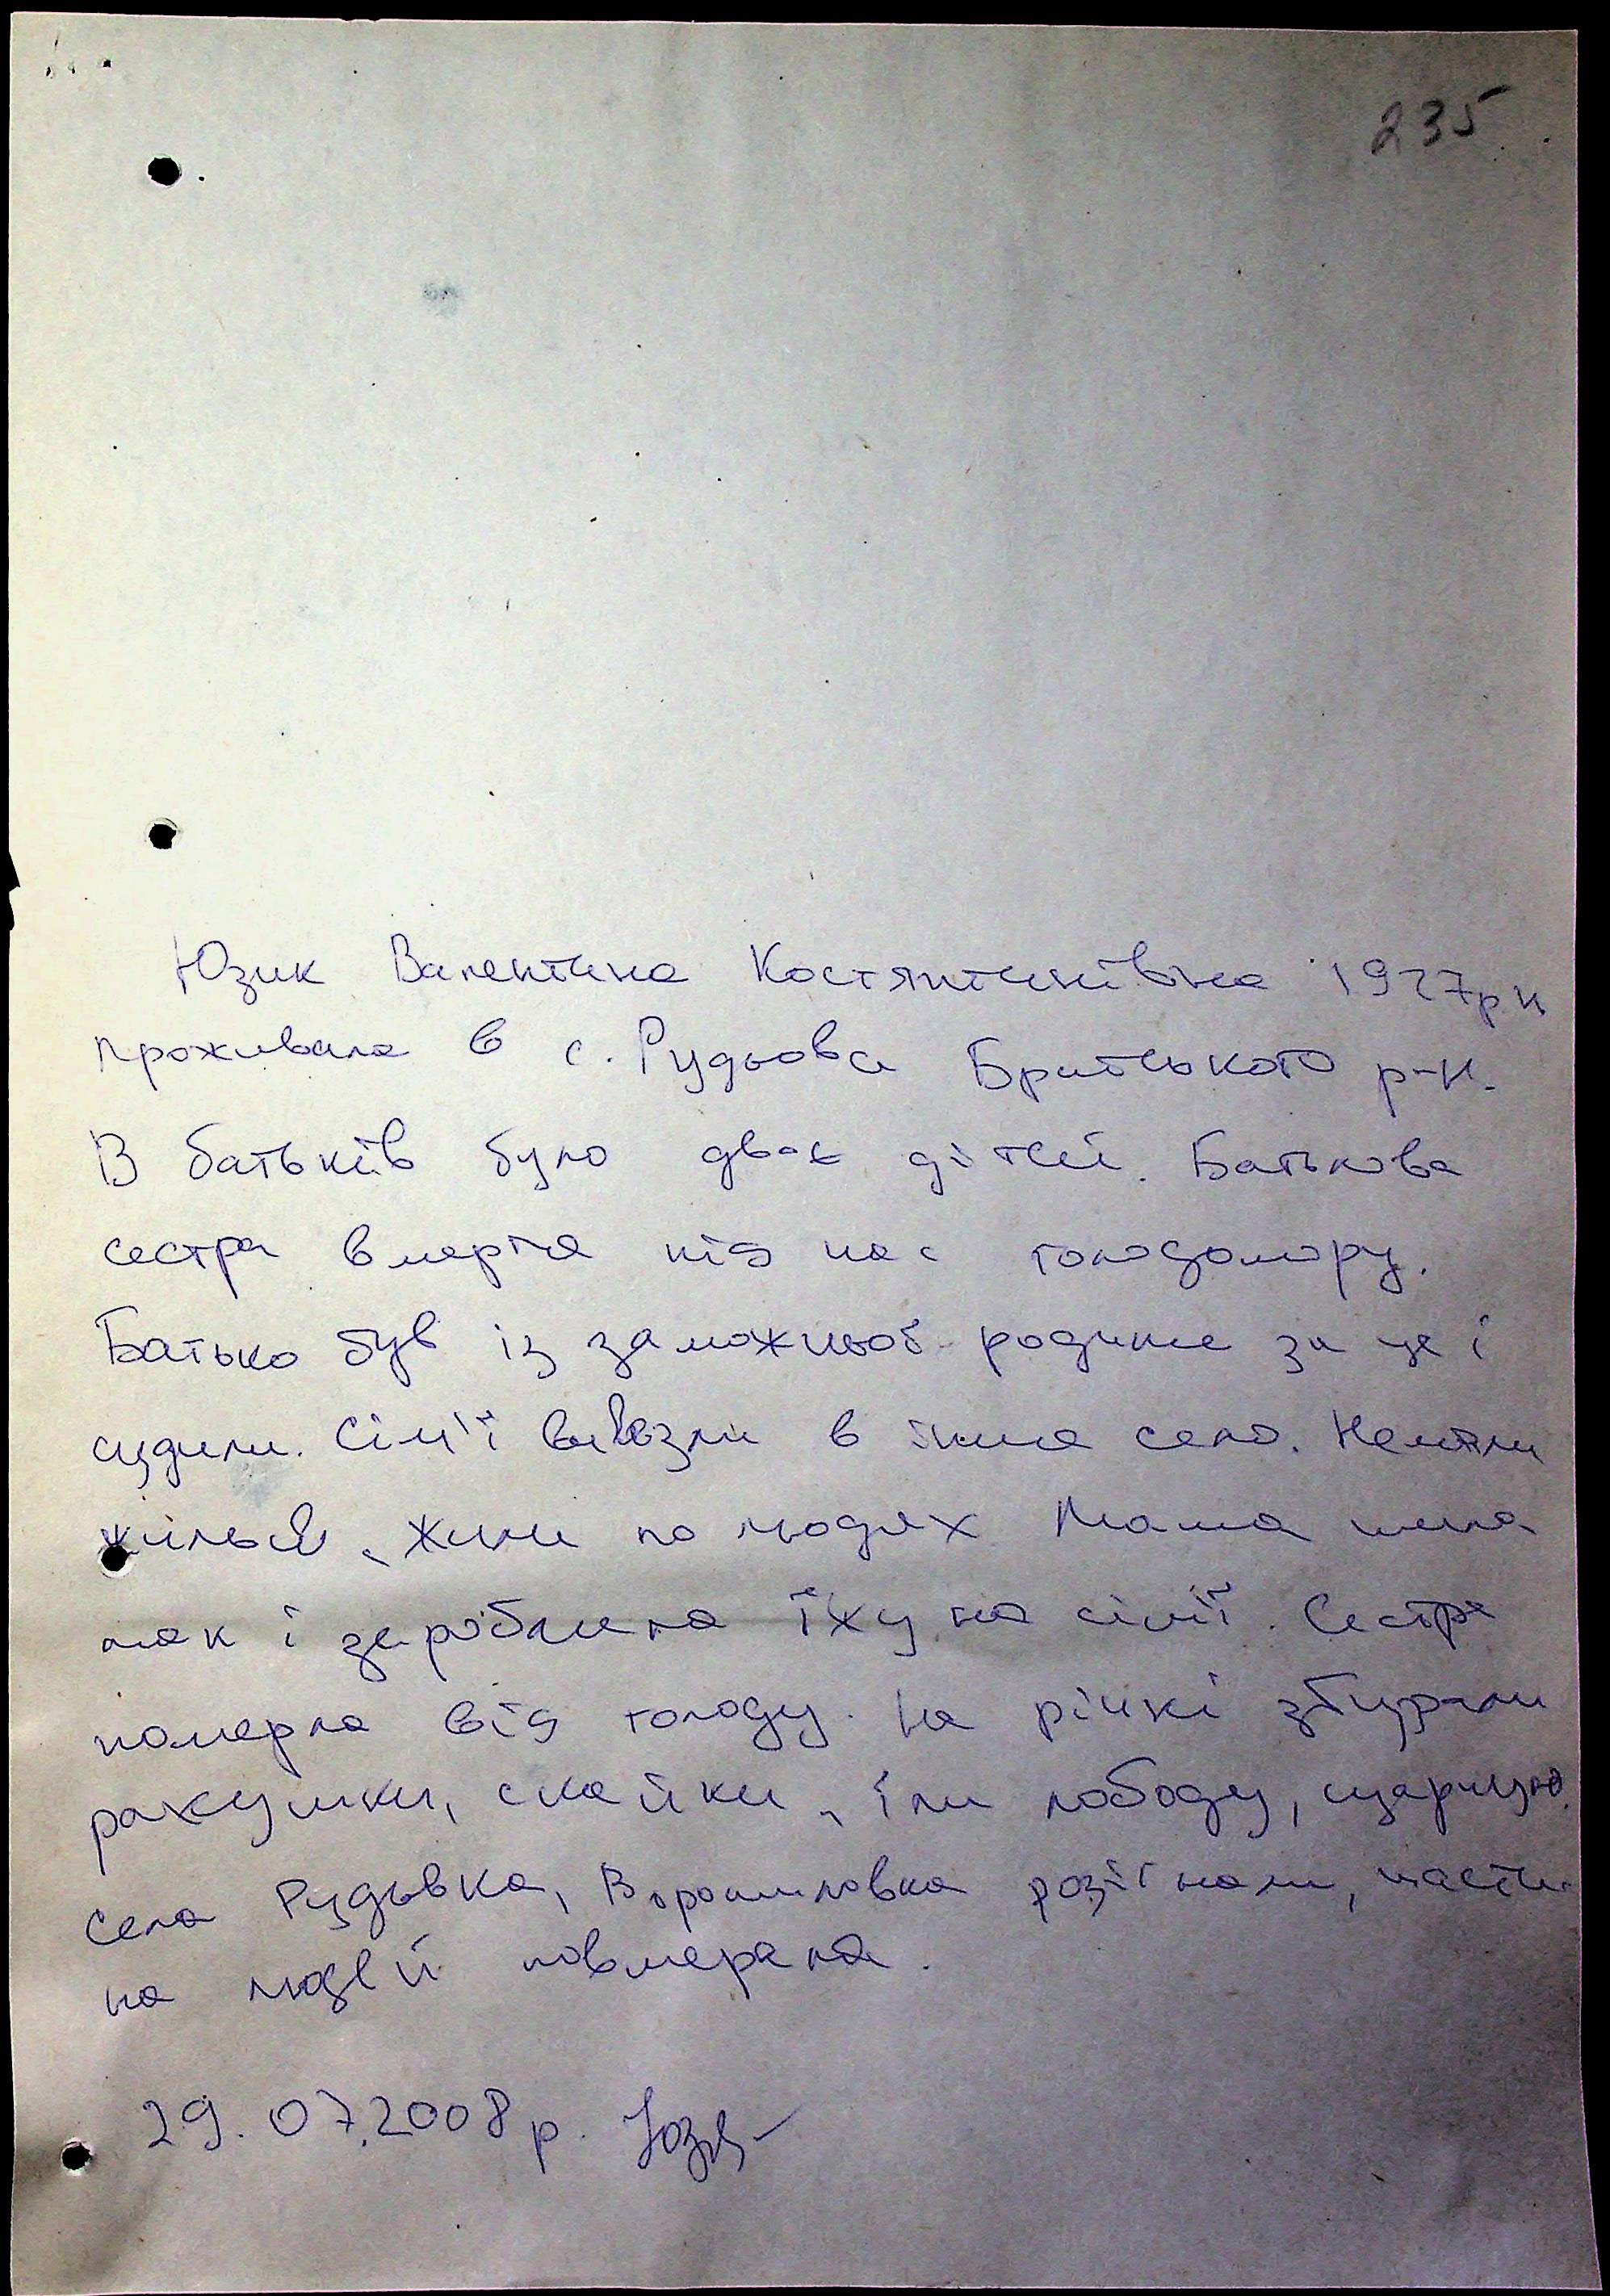 235
Юзик Валентина Костянтинівна 1927 р н
проживала в с. Рудьова Братського р-н.
В батьків було двоє дітей. Батькова
сестра вмерла під час голодомору.
Батько був із заможньої родини за це і
судили. Сім'ї вивезли в інше село. Немали
жильй, жили по людях Мама шила
так і заробляла їжу на сімї. Сестра
померла від голоду. На річкі збирали
ракушки, скойки, їли лободу, щирицю.
Села Рудьвка, Ворошиловка розігнали, части
на людей повмерала.
29.07.2008 р.